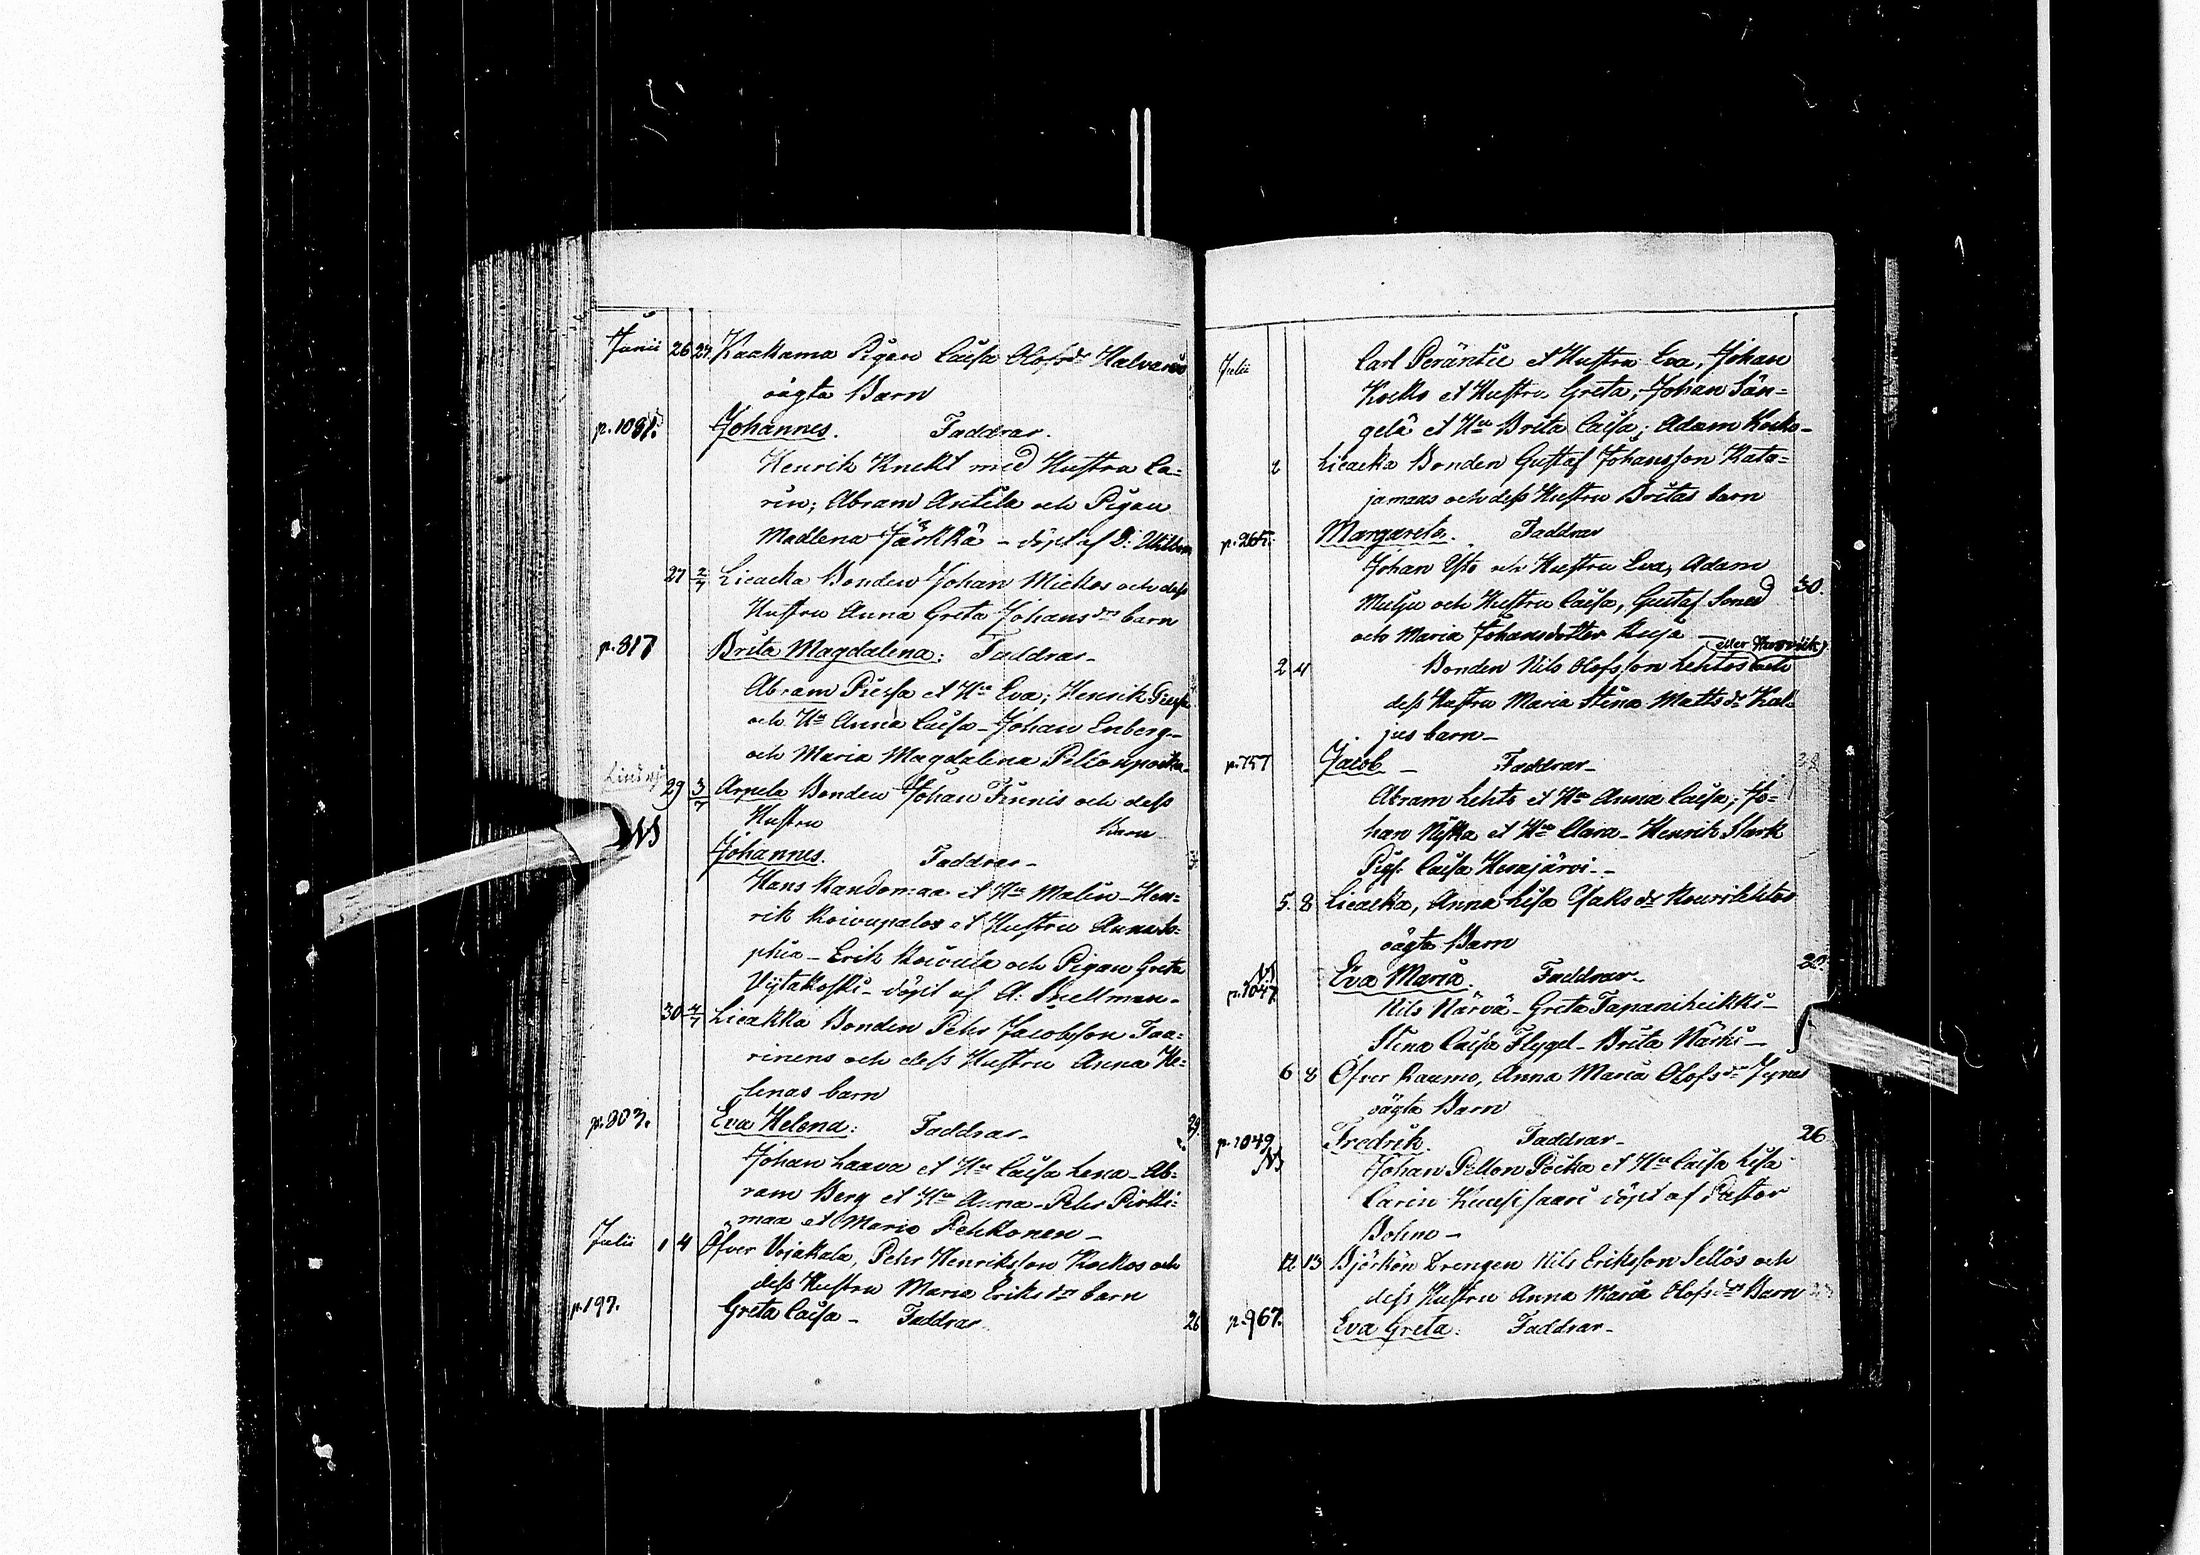 Junii 26 27. Kaakama Pigan Caisa Olofsdr Halvaris
oägta Barn
p. 1081. Johannes. Faddrar.
Henrik Knekt med Hustru Ca=
rin; Abram Antila och Pigan
Madlena Järkkä - döpt af D:
27 2/7 Lieacka Bonden Johan Mickos och dess
Hustru Anna Greta Johansdrs barn
p. 817 Brita Magdalena: Faddrar-
Abram Piessa et Hu Eva; Henrik
och Hu Anna Caisa - Johan Enberg-
och Maria Magdalena
29 3/7 Arpela Bonden Johan Finnis och dess
Hustru Barn
NS Johannes. Faddrar-
Hans Kandomaa et Hu Malin - Hen=
rik Koivupalos et Hustru Anna So=
phia - Erik Koivula och Pigan Greta
Vijtakoski - döpt af A: Snellman-
30 4/7 Lieakka Bonden Pehr Jacobsson Taa=
rinens och dess Hustru Anna He=
lenas barn
p. 803. Eva Helena: Faddrar- 29
Johan Laava et Hu Caisa Lena - Ab=
ram Berg et Hu Anna - Pehr Pirtti=
maa et Maria Pehkonen -
Julii 1 4 Öfver Vojakala, Pehr Henriksson Kockos och
dess Hustru Maria Eriksdrs barn
p. 197. Greta Caisa - Faddrar 26
Julii Carl Peräntie et Hustru Eva, Johan
Kocko et Hustru Greta, Johan Sän=
gelä et Hu Brita Caisa; Adam Kocko-
2 Lieacka Bonden Gustaf Johansson Kata=
jamaas och dess Hustru Britas barn
p. 265. Margareta. Faddrar
Johan Ylto och Hustru Eva, Adam
och Hustru Caisa, Gustaf 30.
och Maria Johansdotter
2 4 Bonden Nils Olofsson Lehtos (eller) och
dess Hustru Maria Stina Mattsdr Kal=
jus barn-
p. 757 Jacob - Faddrar-
Abram Lehto et Hu Anna Caisa; Jo=
han Niska et Hu Clara - Henrik Stark
Pigs: Caisa Kemjärvi--
5. 8 Lieacka, Anna Lisa Isaksdr Nourilehtos
oägta Barn
NS p. 1047 Eva Maria. Faddrar- 20
Nils Närvä - Greta Tapaniheikki-
Stina Caisa Flygel - Brita Närhi-
6 8 Öfver Raumo, Anna Maria Olofsdr
oägta Barn
p. 1049 NS Fredrik. Faddrar- 26
Johan Pellon Poika et Hu Caisa Lisa
Carin döpt af Pastor
Bohm-
12 13 Björkön Drengen Nils Eriksson Sellös och
dess Hustru Anna Maria Olofsdrs Barn
p. 967. Eva Greta: Faddrar-